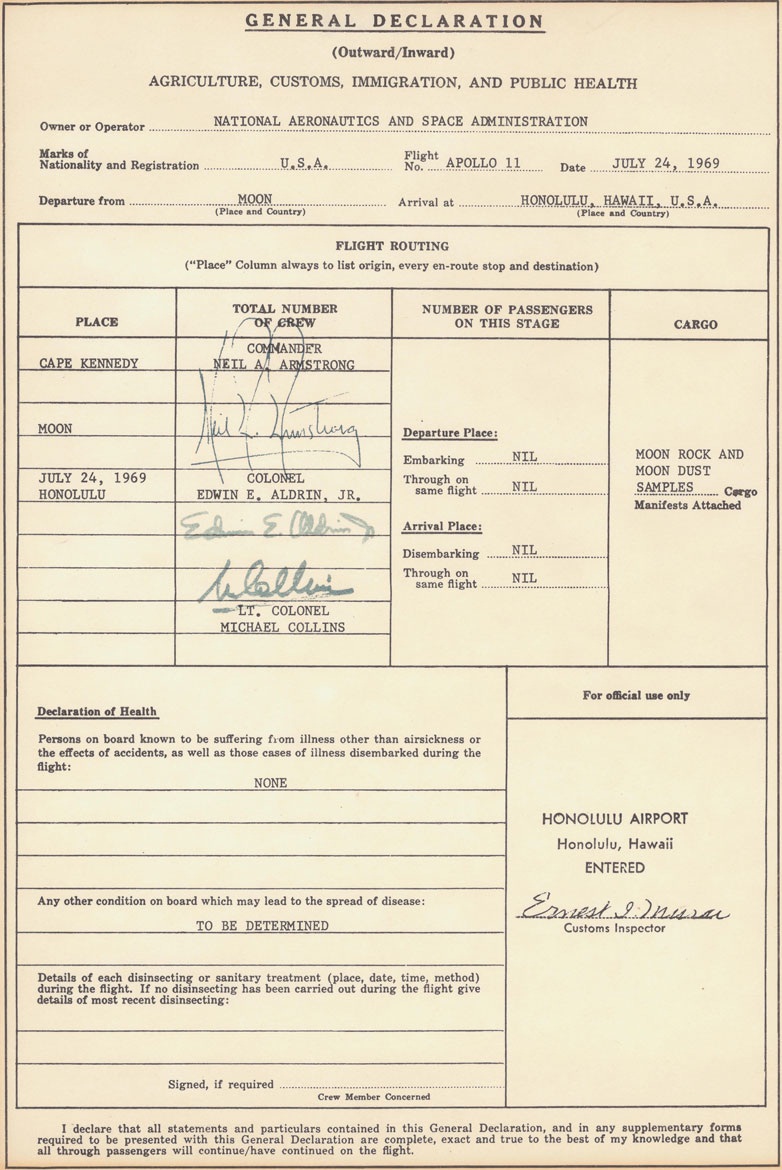 GENERAL DECLARATION
(Outward/Inward)
AGRICULTURE, CUSTOMS, IMMIGRATION, AND PUBLIC HEALTH
Owner or Operator NATIONAL AERONAUTICS AND SPACE ADMINISTRATION
Marks of
Nationality and Registration U.S.A.
Flight
No. APOLLO 11
Date JULY 24, 1969
Departure from MOON
(Place and Country)
Arrival at HONOLULU, HAWAII, U.S.A.
(Place and Country)
FLIGHT ROUTING
("Place" Column always to list origin, every en-route stop and destination)
PLACE
TOTAL NUMBER
OF CREW
NUMBER OF PASSENGERS
ON THIS STAGE
CARGO
CAPE KENNEDY
MOON
JULY 24, 1969
HONOLULU
COMMANDER
NEIL A. ARMSTRONG
Neil A. Armstrong
COLONEL
EDWIN E. ALDRIN, JR.
Edwin E. Aldrin Jr
M Collins
LT. COLONEL
MICHAEL COLLINS
Departure Place:
Embarking NIL
Through on
same flight NIL
Arrival Place:
Disembarking NIL
Through on
same flight NIL
MOON ROCK AND
MOON DUST
SAMPLES Cargo
Manifests Attached
Declaration of Health
Persons on board known to be suffering from illness other than airsickness or
the effects of accidents, as well as those cases of illness disembarked during the
flight:
NONE
Any other condition on board which may lead to the spread of disease:
TO BE DETERMINED
Details of each disinsecting or sanitary treatment (place, date, time, method)
during the flight. If no disinsecting has been carried out during the flight give
details of most recent disinsecting:
Signed, if required
Crew Member Concerned
For official use only
HONOLULU AIRPORT
Honolulu, Hawaii
ENTERED
Ernest I. Murai
Customs Inspector
I declare that all statements and particulars contained in this General Declaration, and in any supplementary forms
required to be presented with this General Declaration are complete, exact and true to the best of my knowledge and that
all through passengers will continue/have continued on the flight.